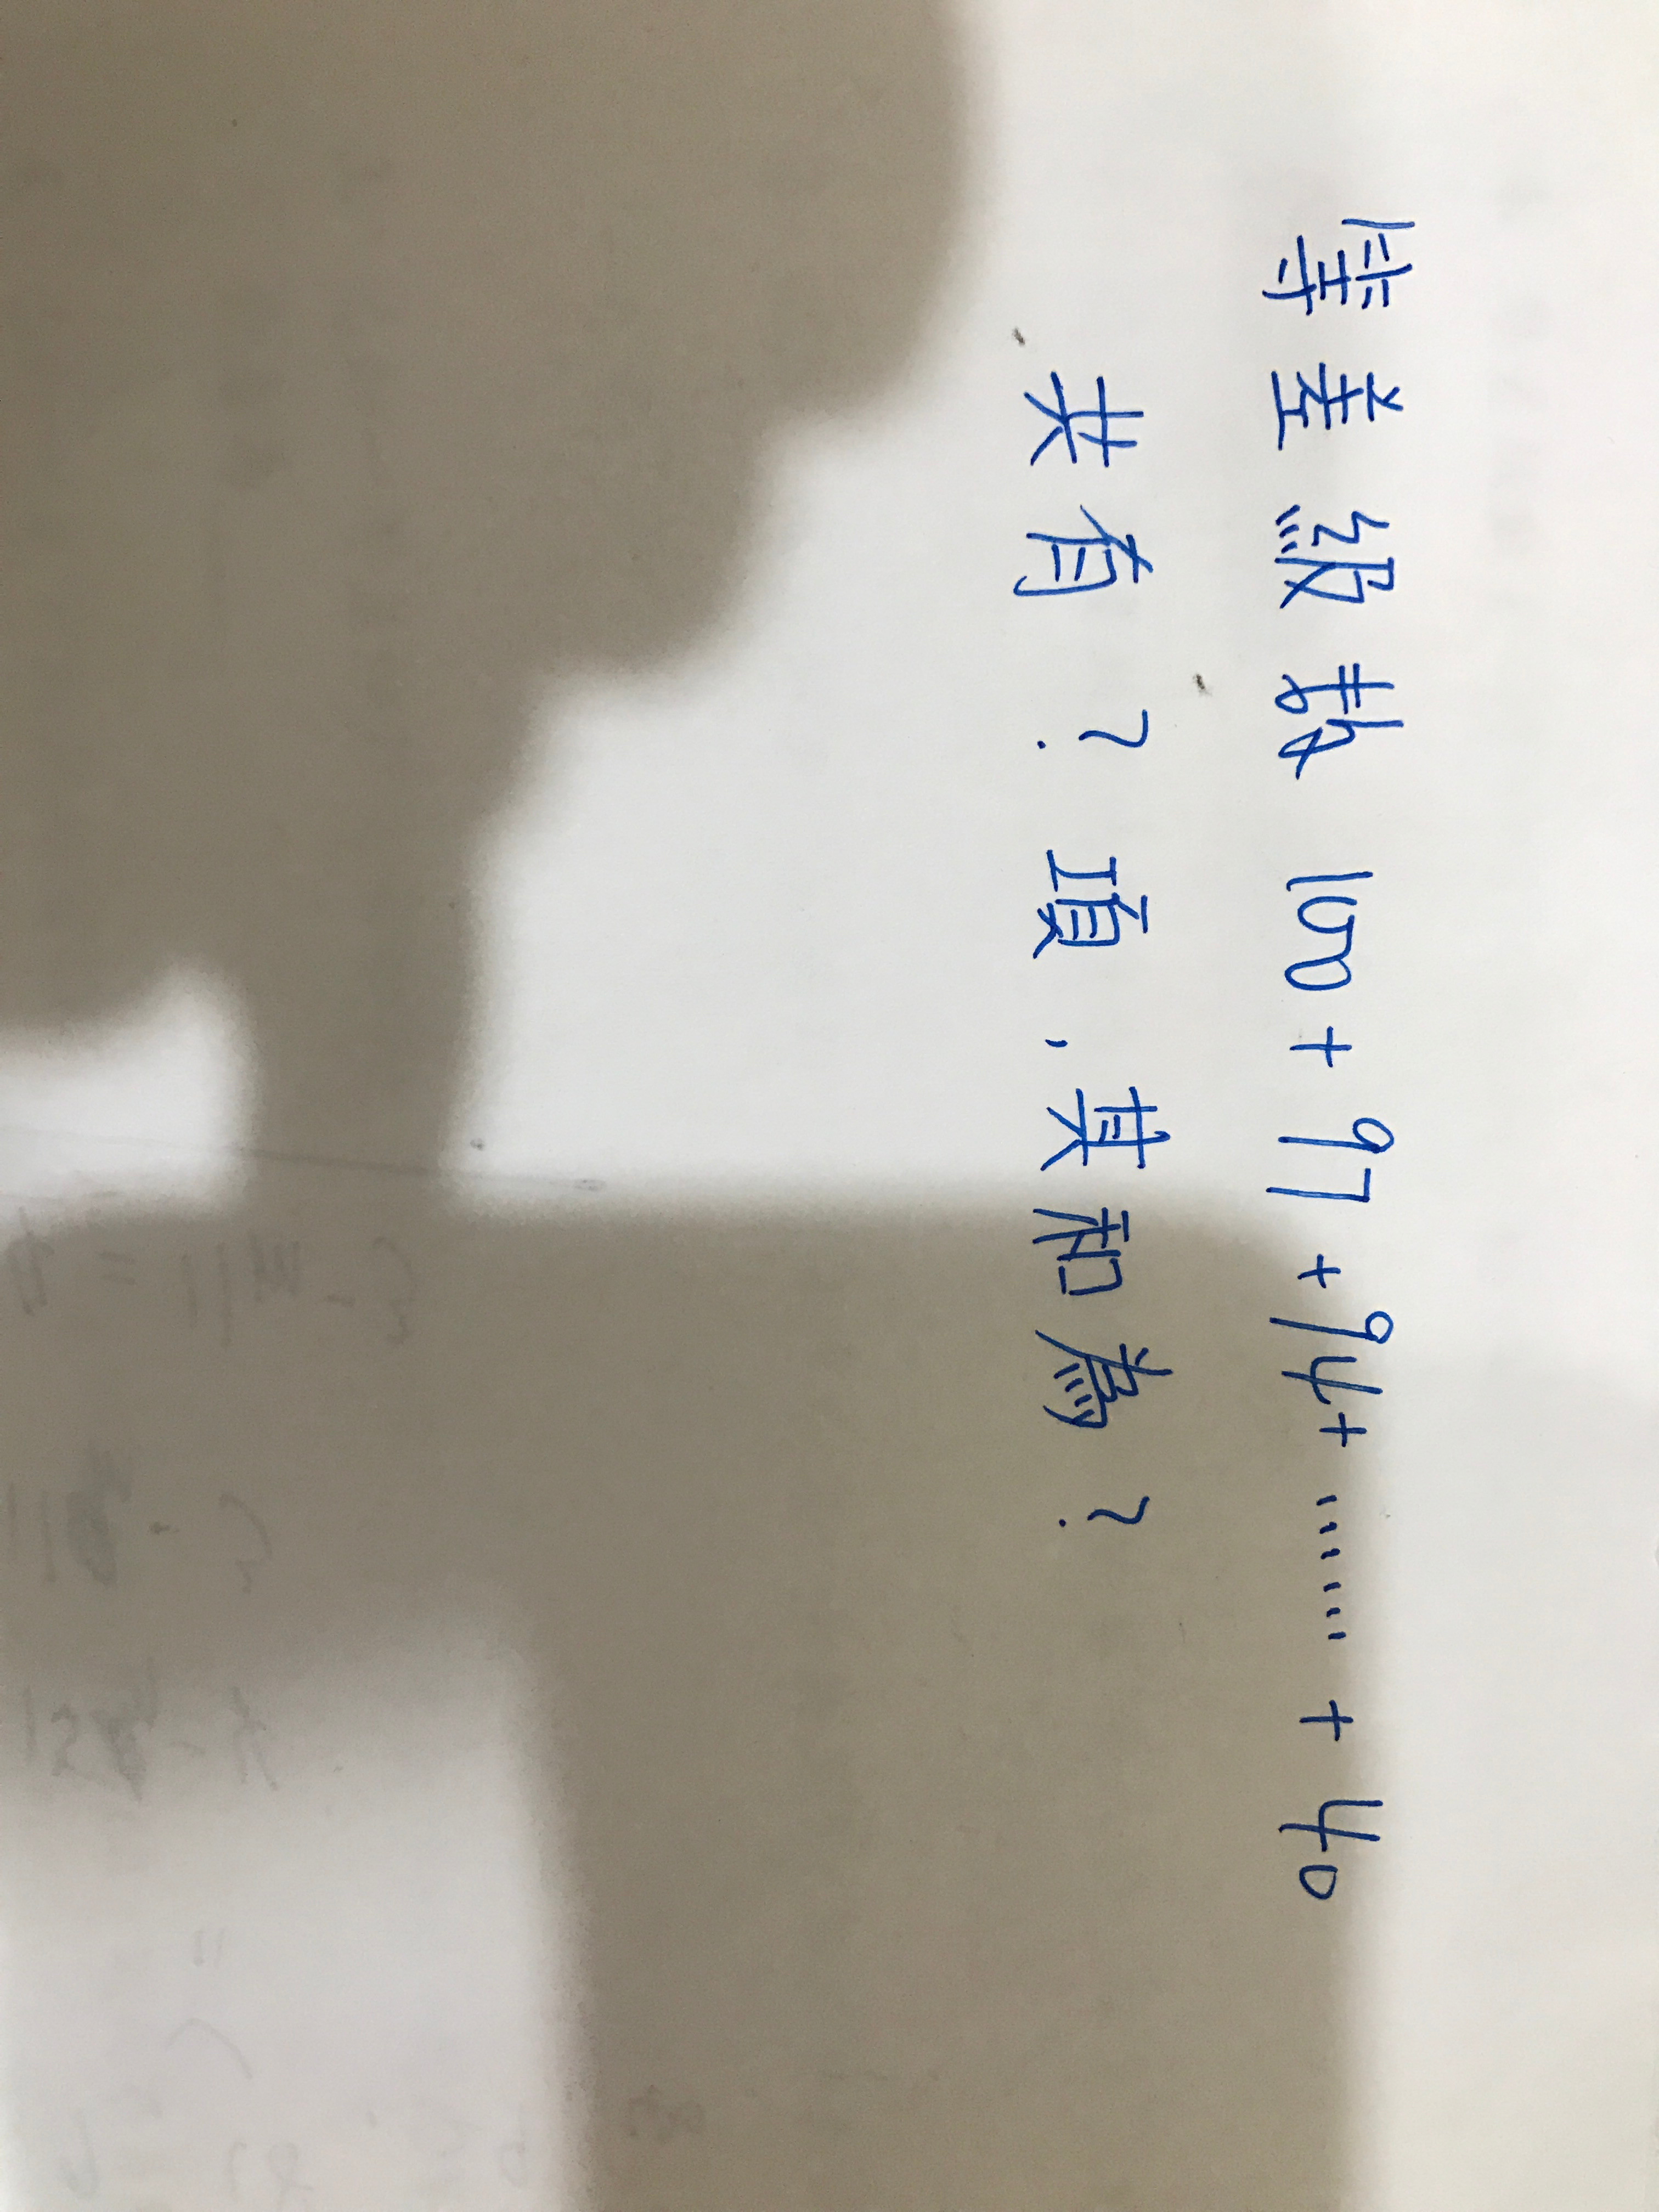 等差級數 100 + 97 + 94 + …… + 40
共有 ? 項,其和為 ?